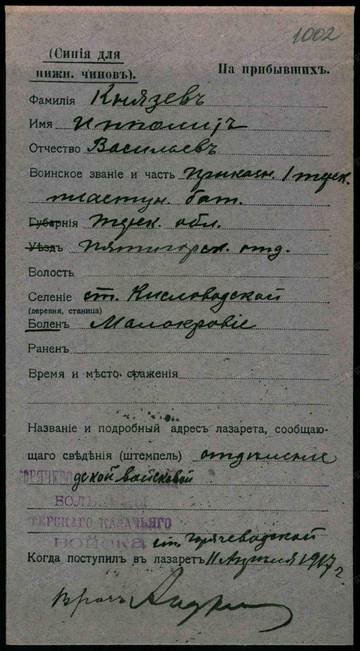 1002
(Синія для
нижн. чиновъ).
На прибывшихъ.
Фамилія Князевъ
Имя Ипполитъ
Отчество Васильевъ
Воинское званіе и часть приказн. 1 терск.
пластун. бат.
Губернія терск. обл.
Уѣздъ Пятигорск. отд.
Волость
Селеніе ст. Кисловодской
(деревня, станица)
Боленъ Малокровіе
Раненъ
Время и мѣсто сраженія
Названіе и подробный адресъ лазарета, сообщаю-
щаго свѣдѣнія (штемпель) отдѣленіе
дской войсковой
БОЛЬНИЦЫ
ТЕРСКАГО КАЗАЧЬЯГО
ВОЙСКА
ст. Горячеводской
Когда поступилъ въ лазаретъ 11 Апрѣля 1917 г.
Врачъ